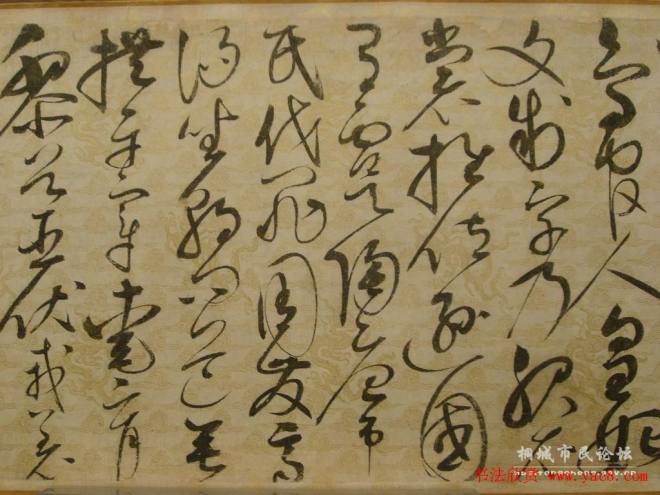 鳥官人皇始
文制字乃服衣
裳推位遜國
有虞陶唐弔
民伐罪周發商
湯坐朝問道垂
拱平章愛育
黎首臣伏戎羌
桐城市民论坛
书法欣赏 www.yac8.com